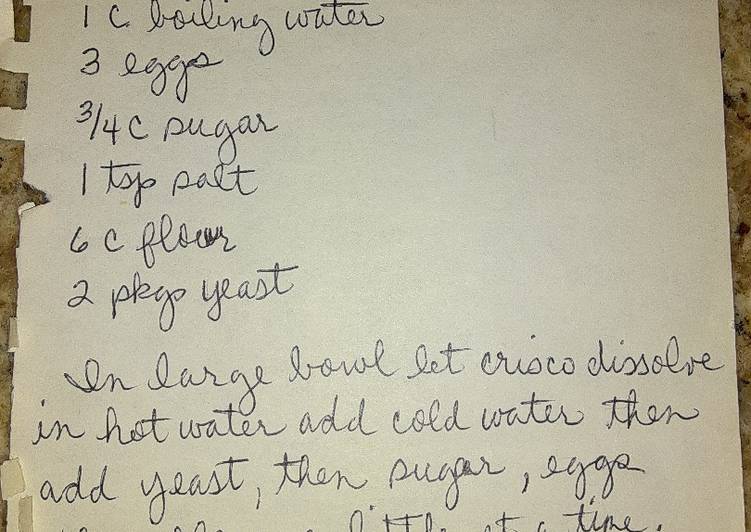 1 c boiling water
3 eggs
3/4 c sugar
1 tsp salt
6 c flour
2 pkgs yeast
In large bowl let crisco dissolve
in hot water add cold water then
add yeast, then sugar, eggs
little at a time.